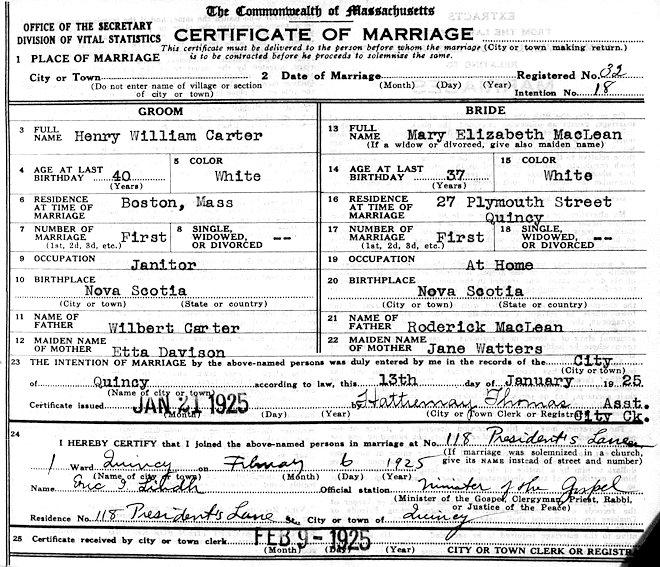 The Commonwealth of Massachusetts
OFFICE OF THE SECRETARY
DIVISION OF VITAL STATISTICS
CERTIFICATE OF MARRIAGE
This certificate must be delivered to the person before whom the marriage (City or town making return.)
is to be contracted before he proceeds to solemnise the same.
1 PLACE OF MARRIAGE
City or Town
(Do not enter name of village or section
of city or town)
2 Date of Marriage
(Month) (Day) (Year)
Registered No. 32
Intention No. 18
GROOM
3 FULL NAME Henry William Carter
4 AGE AT LAST BIRTHDAY 40 (Years)
5 COLOR White
6 RESIDENCE AT TIME OF MARRIAGE Boston, Mass
7 NUMBER OF MARRIAGE (1st, 2d, 3d, etc.) First
8 SINGLE, WIDOWED, OR DIVORCED --
9 OCCUPATION Janitor
10 BIRTHPLACE Nova Scotia
(City or town) (State or country)
11 NAME OF FATHER Wilbert Carter
12 MAIDEN NAME OF MOTHER Etta Davison
BRIDE
13 FULL NAME Mary Elizabeth MacLean
(If a widow or divorced, give also maiden name)
14 AGE AT LAST BIRTHDAY 37 (Years)
15 COLOR White
16 RESIDENCE AT TIME OF MARRIAGE 27 Plymouth Street
Quincy
17 NUMBER OF MARRIAGE (1st, 2d, 3d, etc.) First
18 SINGLE, WIDOWED, OR DIVORCED --
19 OCCUPATION At Home
20 BIRTHPLACE Nova Scotia
(City or town) (State or country)
21 NAME OF FATHER Roderick MacLean
22 MAIDEN NAME OF MOTHER Jane Watters
23 THE INTENTION OF MARRIAGE by the above-named persons was duly entered by me in the records of the City
(City or town)
of Quincy according to law, this 13th day of January 1925
(Name of city or town)
Certificate issued JAN 21 1925 by Hattiemay Thomas Asst.
(Month) (Day) (Year) (City or Town Clerk or Registrar) City Ck.
24 I HEREBY CERTIFY that I joined the above-named persons in marriage at No. 118 President's Lane
(If marriage was solemnized in a church,
give its NAME instead of street and number)
1 Ward Quincy on February 6 1925
(Name of city or town) (Month) (Day) (Year)
Name Eric I Official station Minister of the Gospel
(Minister of the Gospel, Clergyman, Priest, Rabbi,
or Justice of the Peace)
Residence No. 118 President's Lane St., City or town of Quincy
25 Certificate received by city or town clerk FEB 9 - 1925
(Month) (Day) (Year) CITY OR TOWN CLERK OR REGISTRAR